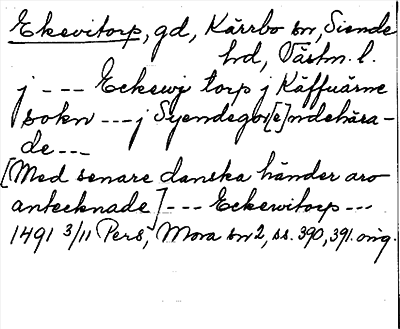 Ekevitorp, gd, Kärrbo sn, Siende
hd, Västm. l.
j --- Eckewj torp j Käffuärne
sokn --- j Syendegor[e]ndehära-
de ---
[Med senare danska händer äro
antecknade] --- Eckewitorp ---
1491 3/11 Perg, Mora sn 2, ss. 390, 391. orig.